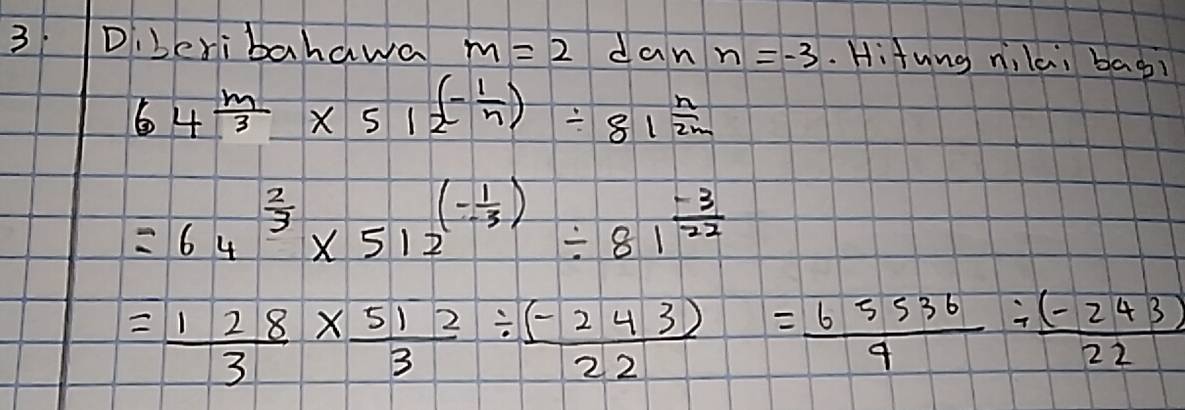 3. Diberi bahawa m = 2 dan n = -3. Hitung nilai bagi
64^(m/3) × 512^(-1/n) ÷ 81^(n/2m)
= 64^(2/3) × 512^(-1/3) ÷ 81^(-3/22)
= 128/3 × 512/3 ÷ (-243)/22 = 65536/9 ÷ (-243)/22